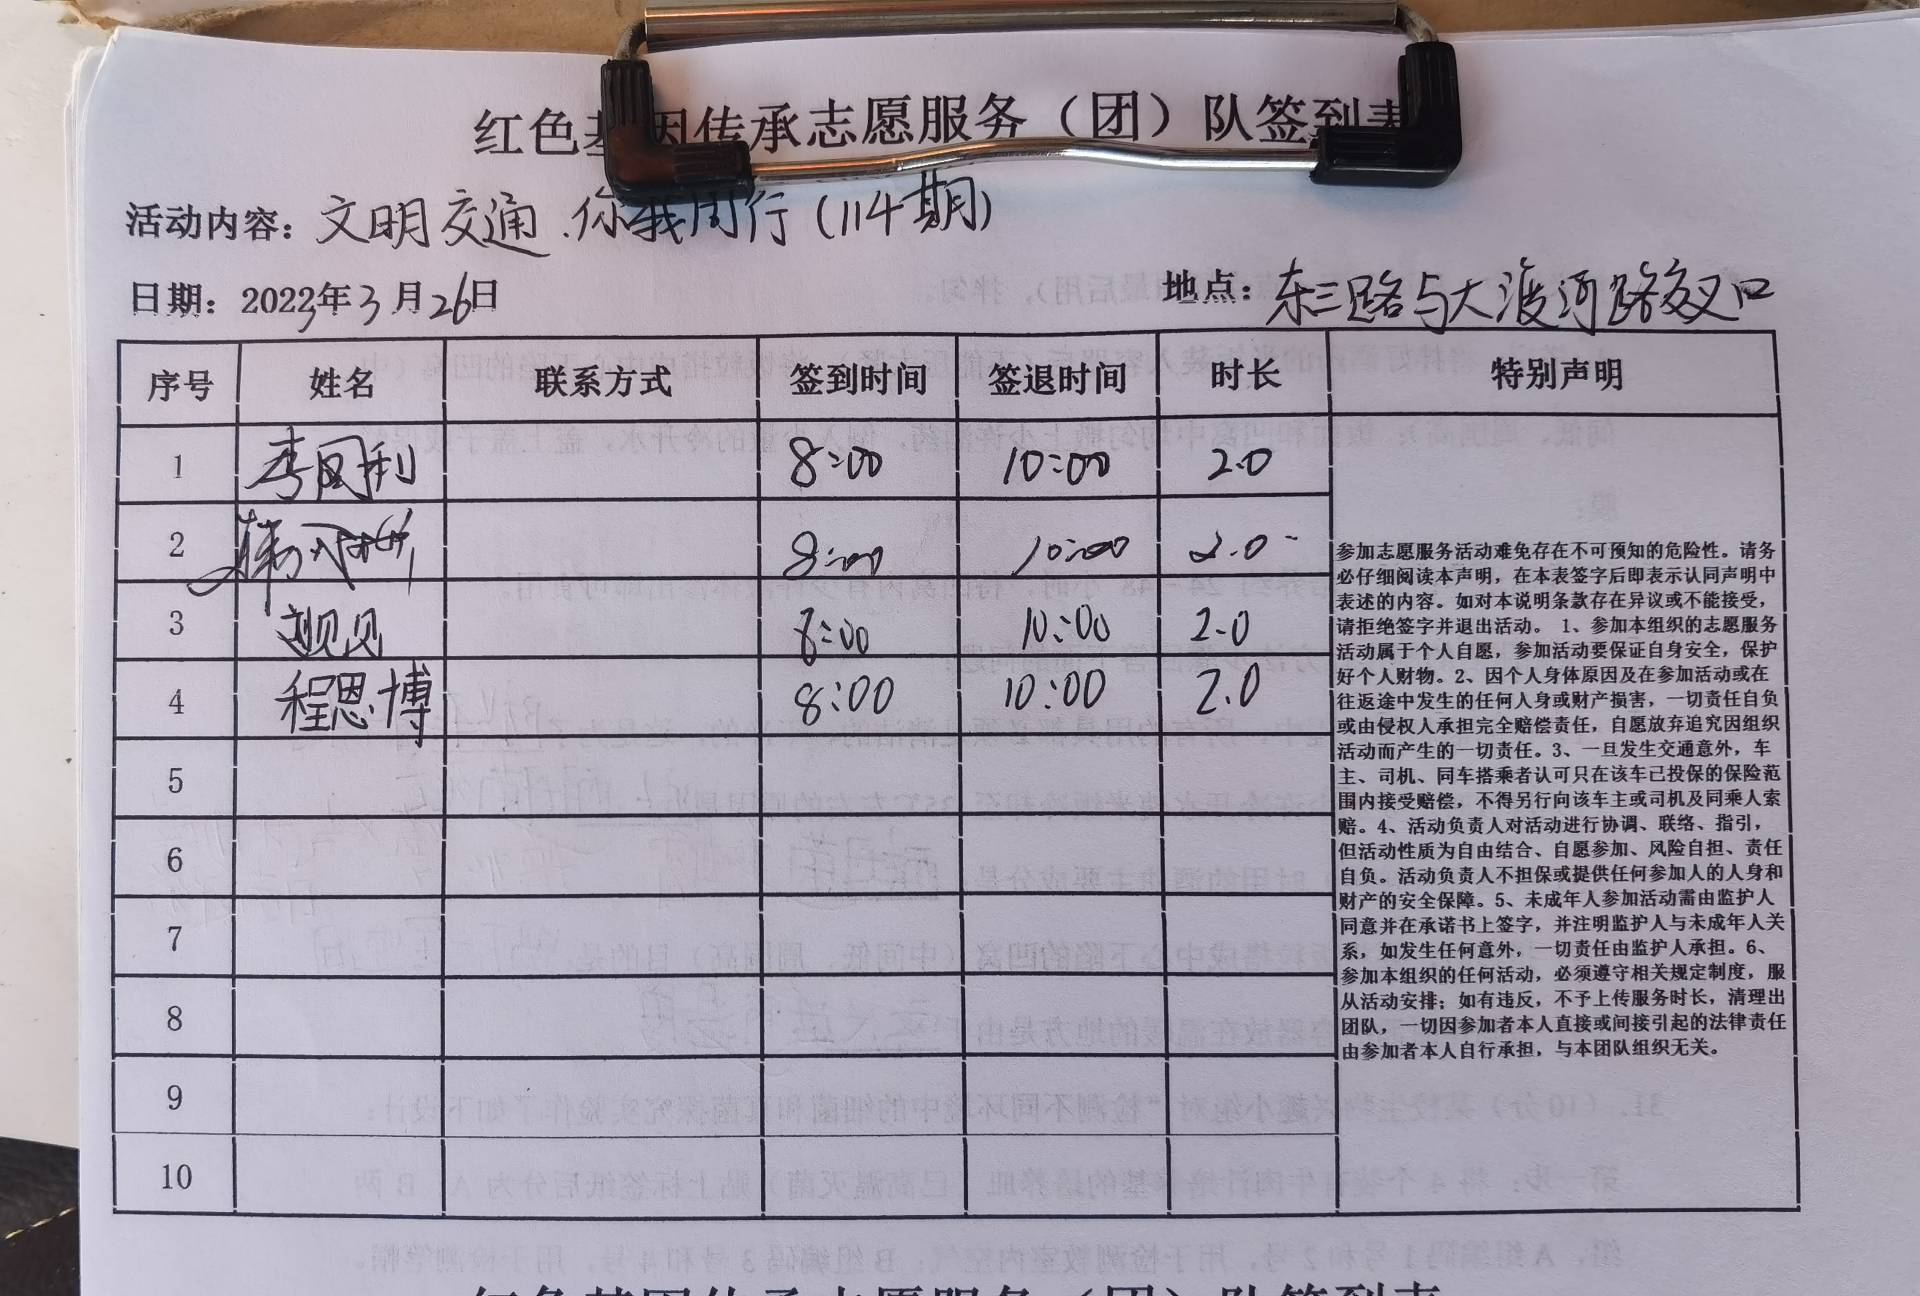 红色基因传承志愿服务（团）队签到表
活动内容：文明交通.你我同行（114期）
日期：2023年3月26日
地点：东三路与大渡河路交叉口
序号 姓名 联系方式 签到时间 签退时间 时长 特别声明
1 李凤利 8:00 10:00 2.0
2 8:00 10:00 2.0
3 8:00 10:00 2.0
4 程恩博 8:00 10:00 2.0
5
6
7
8
9
10
参加志愿服务活动难免存在不可预知的危险性。请务
必仔细阅读本声明，在本表签字后即表示认同声明中
表述的内容。如对本说明条款存在异议或不能接受，
请拒绝签字并退出活动。 1、参加本组织的志愿服务
活动属于个人自愿，参加活动要保证自身安全，保护
好个人财物。2、因个人身体原因及在参加活动或在
往返途中发生的任何人身或财产损害，一切责任自负
或由侵权人承担完全赔偿责任，自愿放弃追究因组织
活动而产生的一切责任。3、一旦发生交通意外，车
主、司机、同车搭乘者认可只在该车已投保的保险范
围内接受赔偿，不得另行向该车主或司机及同乘人索
赔。4、活动负责人对活动进行协调、联络、指引，
但活动性质为自由结合、自愿参加、风险自担、责任
自负。活动负责人不担保或提供任何参加人的人身和
财产的安全保障。5、未成年人参加活动需由监护人
同意并在承诺书上签字，并注明监护人与未成年人关
系，如发生任何意外，一切责任由监护人承担。6、
参加本组织的任何活动，必须遵守相关规定制度，服
从活动安排；如有违反，不予上传服务时长，清理出
团队，一切因参加者本人直接或间接引起的法律责任
由参加者本人自行承担，与本团队组织无关。
红色基因传承志愿服务（团）队签到表